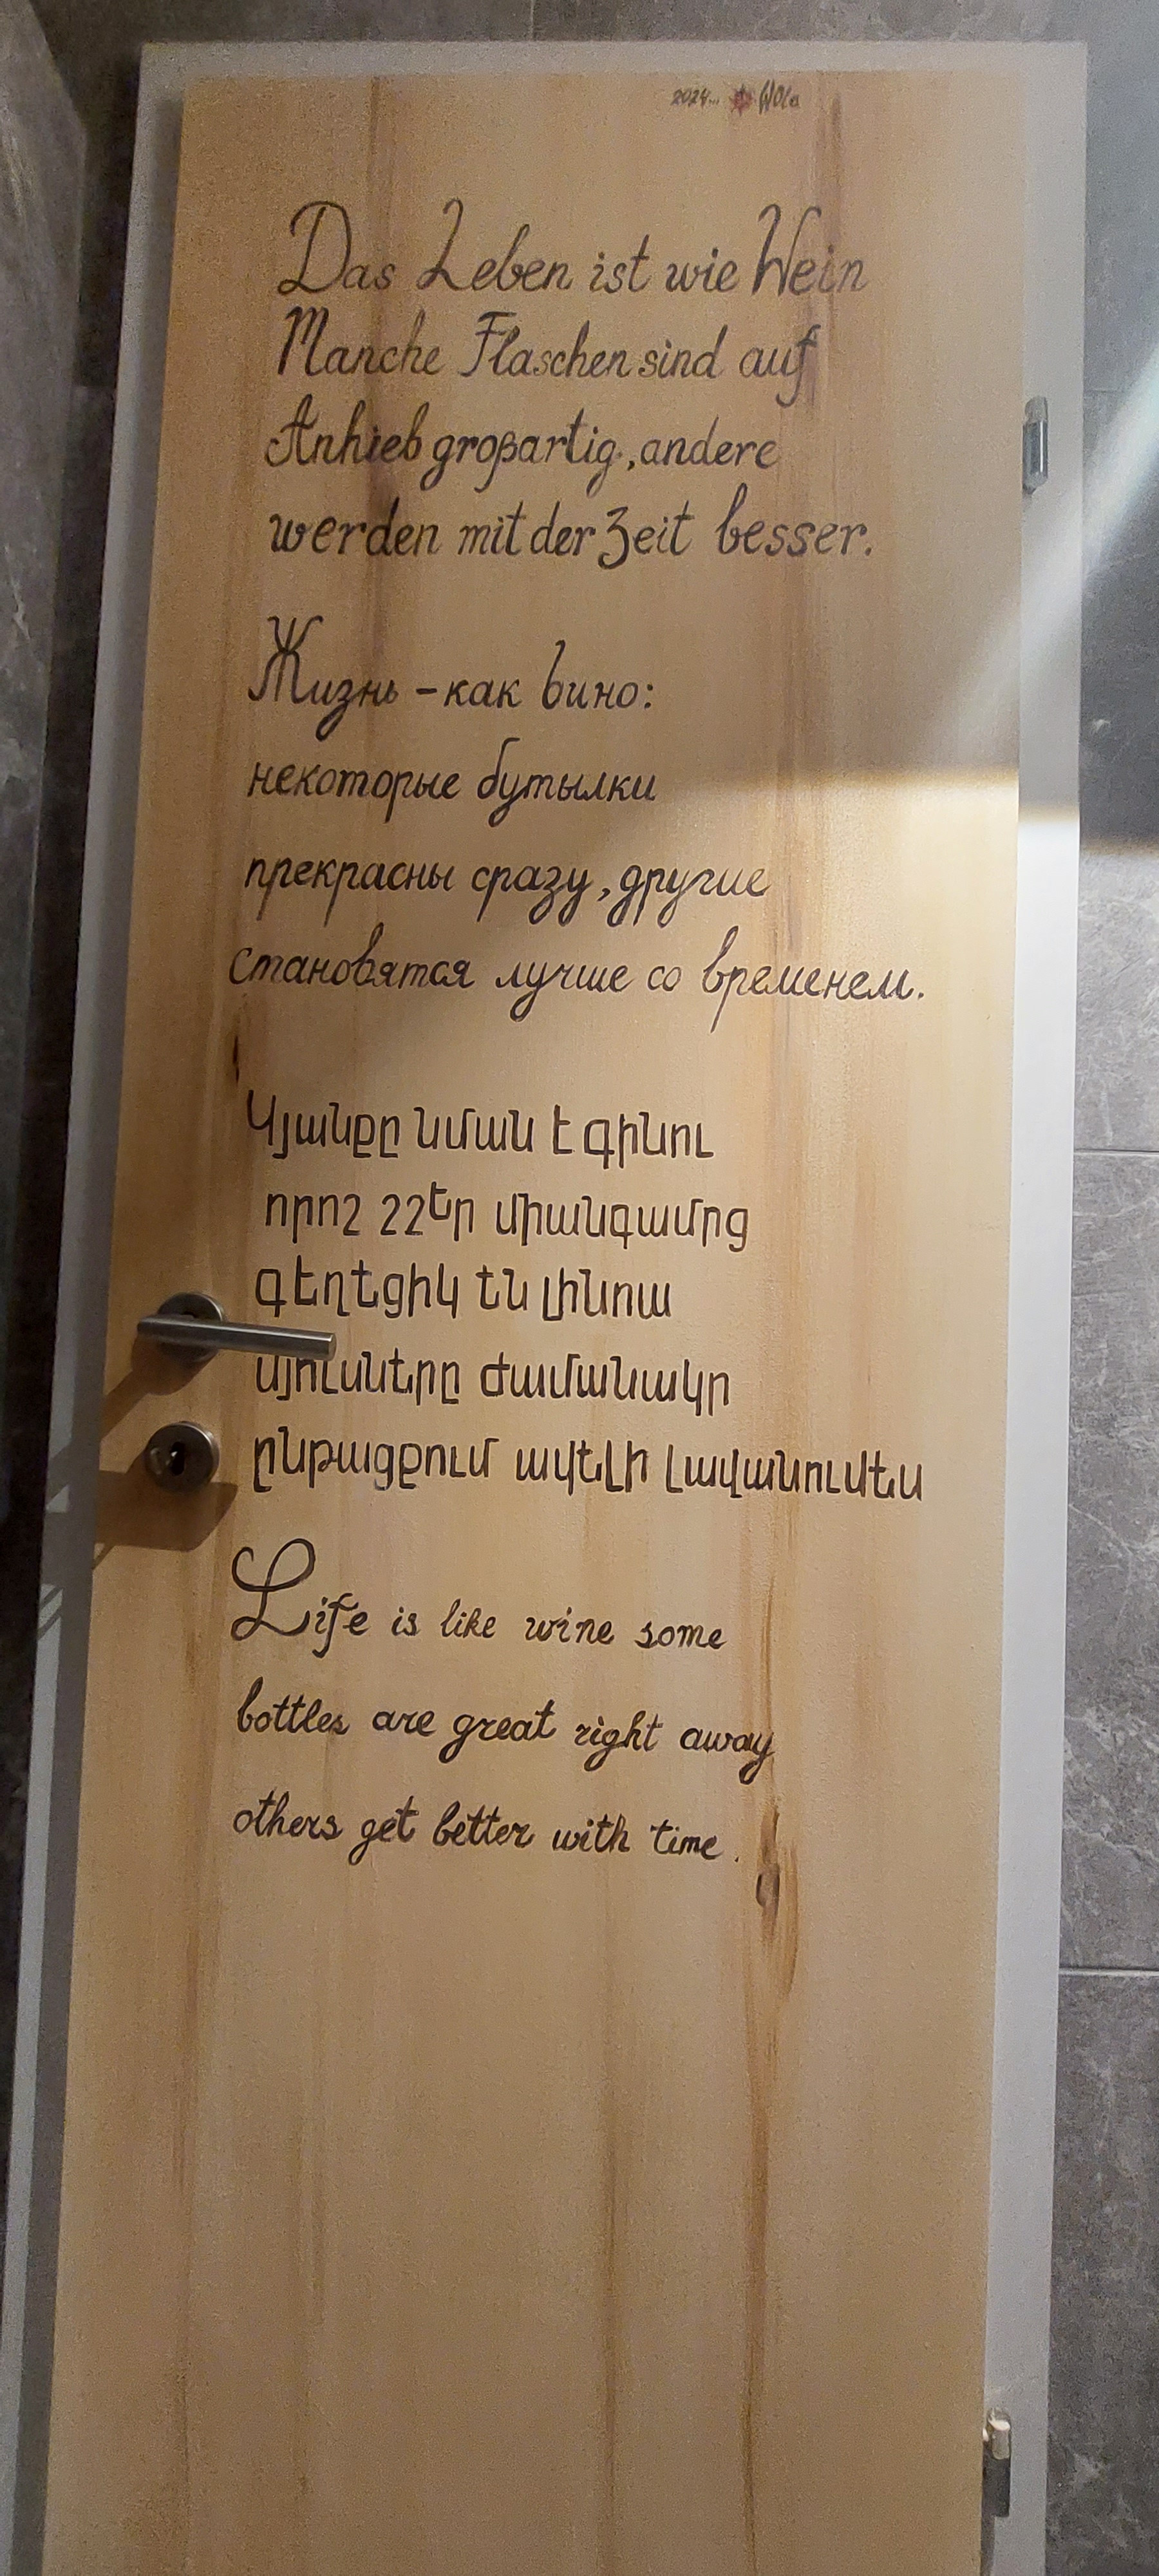 2024... Wola
Das Leben ist wie Wein
Manche Flaschen sind auf
Anhieb großartig, andere
werden mit der Zeit besser.
Жизнь – как вино:
некоторые бутылки
прекрасны сразу, другие
становятся лучше со временем.
Կյանքը նման է գինու
որոշ շշեր միանգամրց
գեղեցիկ են լինոա
մյուսները ժամանակր
ընթացքում ավելի լավանումես
Life is like wine some
bottles are great right away
others get better with time.